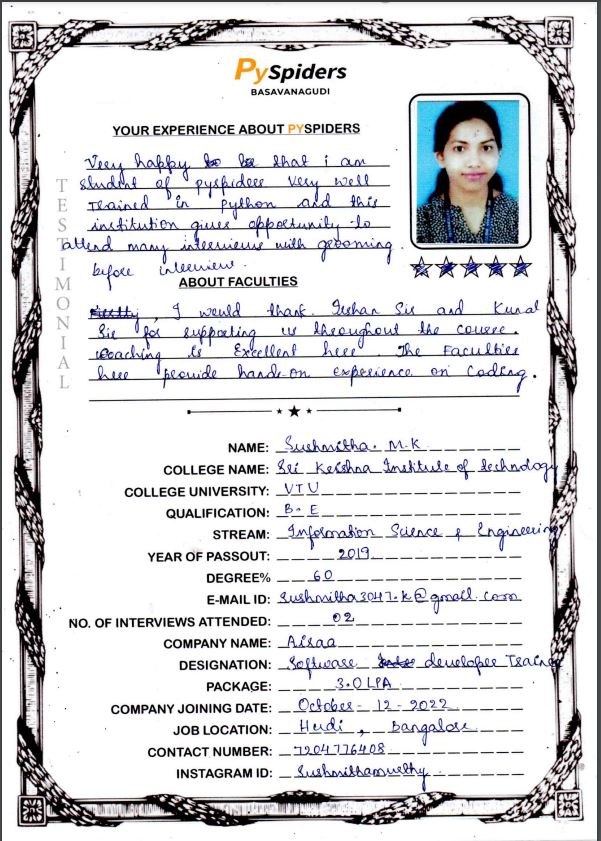 PySpiders
BASAVANAGUDI
YOUR EXPERIENCE ABOUT PYSPIDERS
Very happy to be that i am
student of pyspiders Very well
trained in python and this
institution gives opportunity to
attend many interviews with grooming
before interview.
TESTIMONIAL
ABOUT FACULTIES
Firstly, I would thank Ieshan Sir and Kunal
Sir for supporting us throughout the course.
coaching is Excellent here. The Faculties
here provide hands-on experience on Coding.
NAME: Sushmitha. M.K
COLLEGE NAME: Sri Krishna Institute of technology
COLLEGE UNIVERSITY: VTU
QUALIFICATION: B.E
STREAM: Information Science & Engineering
YEAR OF PASSOUT: 2019
DEGREE% 60
E-MAIL ID: Sushmitha3047.k@gmail.com
NO. OF INTERVIEWS ATTENDED: 02
COMPANY NAME: Airaa
DESIGNATION: Software developer Trainee
PACKAGE: 3.0 LPA
COMPANY JOINING DATE: October - 12 - 2022
JOB LOCATION: Hudi, Bangalore
CONTACT NUMBER: 7204776408
INSTAGRAM ID: Sushmithamurthy.